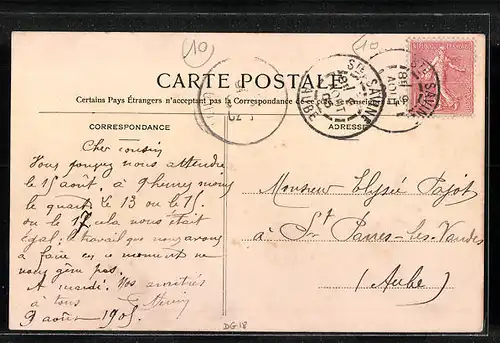 (10)
(10)
CARTE POSTALE
Certains Pays Étrangers n'acceptant pas la Correspondance
CORRESPONDANCE
ADRESSE
STE SAVINE
AUBE
STE SAVINE
Cher cousin
Vous pouvez nous attendre
le 15 août, à 9 heures moins
le quart le 13 ou le 15.
ou le 17 cela nous était
égal; le travail que nous avons
à faire en ce moment ne
nous gêne pas.
A mardi. Nos amitiés
à tous
9 août 1905
Monsieur Elysée Pajot
à St Parres-les-Vaudes
(Aube)
DG18